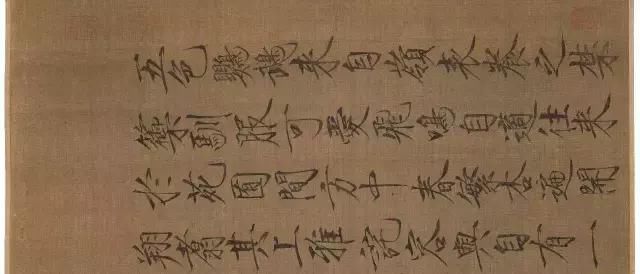 五色鸚鵡来自嶺表養之禁
籞馴服可愛飛鳴自適往来
於苑囿間方中春繁杏遍開
翔翥其上雅詫容與自有一